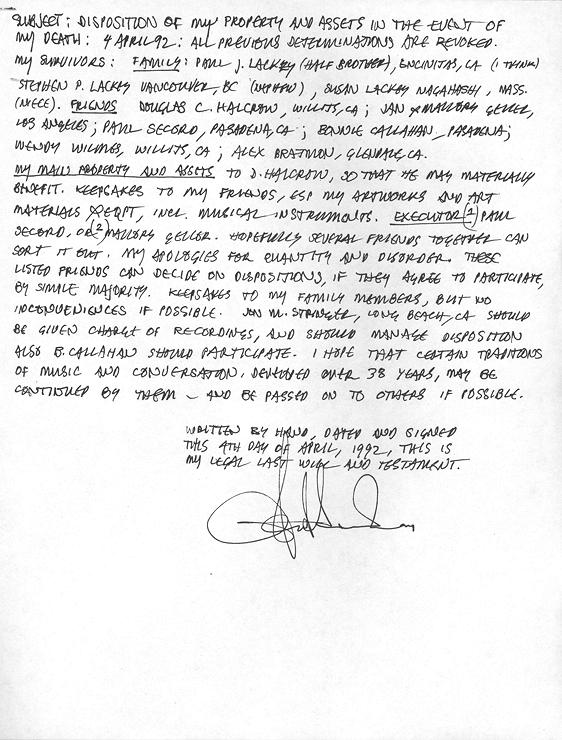 SUBJECT: DISPOSITION OF MY PROPERTY AND ASSETS IN THE EVENT OF
MY DEATH: 4 APRIL 92: ALL PREVIOUS DETERMINATIONS ARE REVOKED.
MY SURVIVORS: FAMILY: PAUL J. LACKEY (HALF BROTHER), ENCINITAS, CA (I THINK)
STEPHEN P. LACKEY VANCOUVER, BC (NEPHEW), SUSAN LACKEY NAGAHASHI, MASS.
(NIECE). FRIENDS DOUGLAS C. HALCROW, WILLITS, CA; JAN & MALLORY GELLER,
LOS ANGELES; PAUL SECORD, PASADENA, CA; BONNIE CALLAHAN, PASADENA;
WENDY WILMES, WILLITS, CA; ALEX BRATMON, GLENDALE, CA.
MY MAIN PROPERTY AND ASSETS TO D. HALCROW, SO THAT HE MAY MATERIALLY
BENEFIT. KEEPSAKES TO MY FRIENDS, ESP MY ARTWORKS AND ART
MATERIALS & EQPT, INCL. MUSICAL INSTRUMENTS. EXECUTOR (1) PAUL
SECORD, OR (2) MALLORY GELLOR. HOPEFULLY SEVERAL FRIENDS TOGETHER CAN
SORT IT OUT. MY APOLOGIES FOR QUANTITY AND DISORDER. THESE
LISTED FRIENDS CAN DECIDE ON DISPOSITIONS, IF THEY AGREE TO PARTICIPATE,
BY SIMPLE MAJORITY. KEEPSAKES TO MY FAMILY MEMBERS, BUT NO
INCONVENIENCES IF POSSIBLE. JON M. STRINGER, LONG BEACH, CA SHOULD
BE GIVEN CHARGE OF RECORDINGS, AND SHOULD MANAGE DISPOSITION
ALSO B. CALLAHAN SHOULD PARTICIPATE. I HOPE THAT CERTAIN TRADITIONS
OF MUSIC AND CONVERSATION, DEVELOPED OVER 38 YEARS, MAY BE
CONTINUED BY THEM – AND BE PASSED ON TO OTHERS IF POSSIBLE.
WRITTEN BY HAND, DATED AND SIGNED
THIS 4TH DAY OF APRIL, 1992, THIS IS
MY LEGAL LAST WILL AND TESTAMENT.